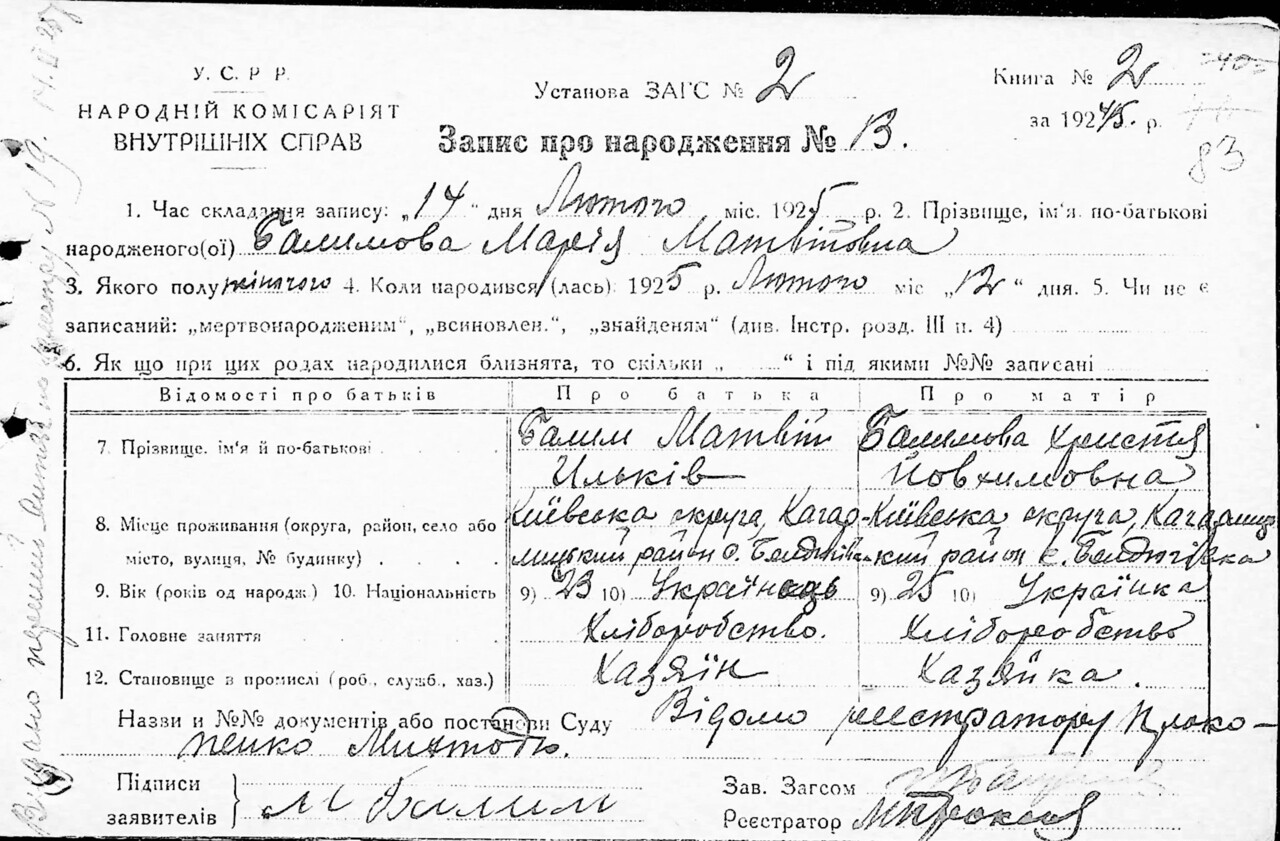 У. С. Р Р.
НАРОДНІЙ КОМІСАРІЯТ
ВНУТРІШНІХ СПРАВ
Установа ЗАГС № 2
Книга № 2
за 1924/5. р.
83
Запис про народження № 13.
1. Час складання запису: „14" дня Лютого міс. 1925 р. 2. Прізвище, ім'я по-батькові
народженого(ої) Балимова Марія Матвіївна
3. Якого полу жіночого 4. Коли народився (лась) 1925 р. Лютого міс „12" дня. 5. Чи не є
записаний: „мертвонародженим", „всиновлен.", „знайденям" (див. Інстр. розд. III п. 4)
6. Як що при цих родах народилися близнята, то скільки „ " і під якими №№ записані
Відомості про батьків Про батька Про матір
7. Прізвище. ім'я й по-батькові Балим Матвій Балимова Христя
Ильків Йовхимовна
8. Місце проживання (округа, район, село або Київська округа, Кагар- Київська округа, Кагарлиц
місто, вулиця, № будинку) лицький район с. кий район с.
9. Вік (років од народж.) 10. Національність 9) 23 10) Українець 9) 25 10) Українка
11. Головне заняття Хліборобство. Хліборобство
12. Становище в промислі (роб., служб., хаз.) Хазяїн Хазяйка.
Назви и №№ документів або постанови Суду Відомо реєстратору Проко-
пенко
Підписи
заявителів М Балим
Зав. Загсом
Реєстратор